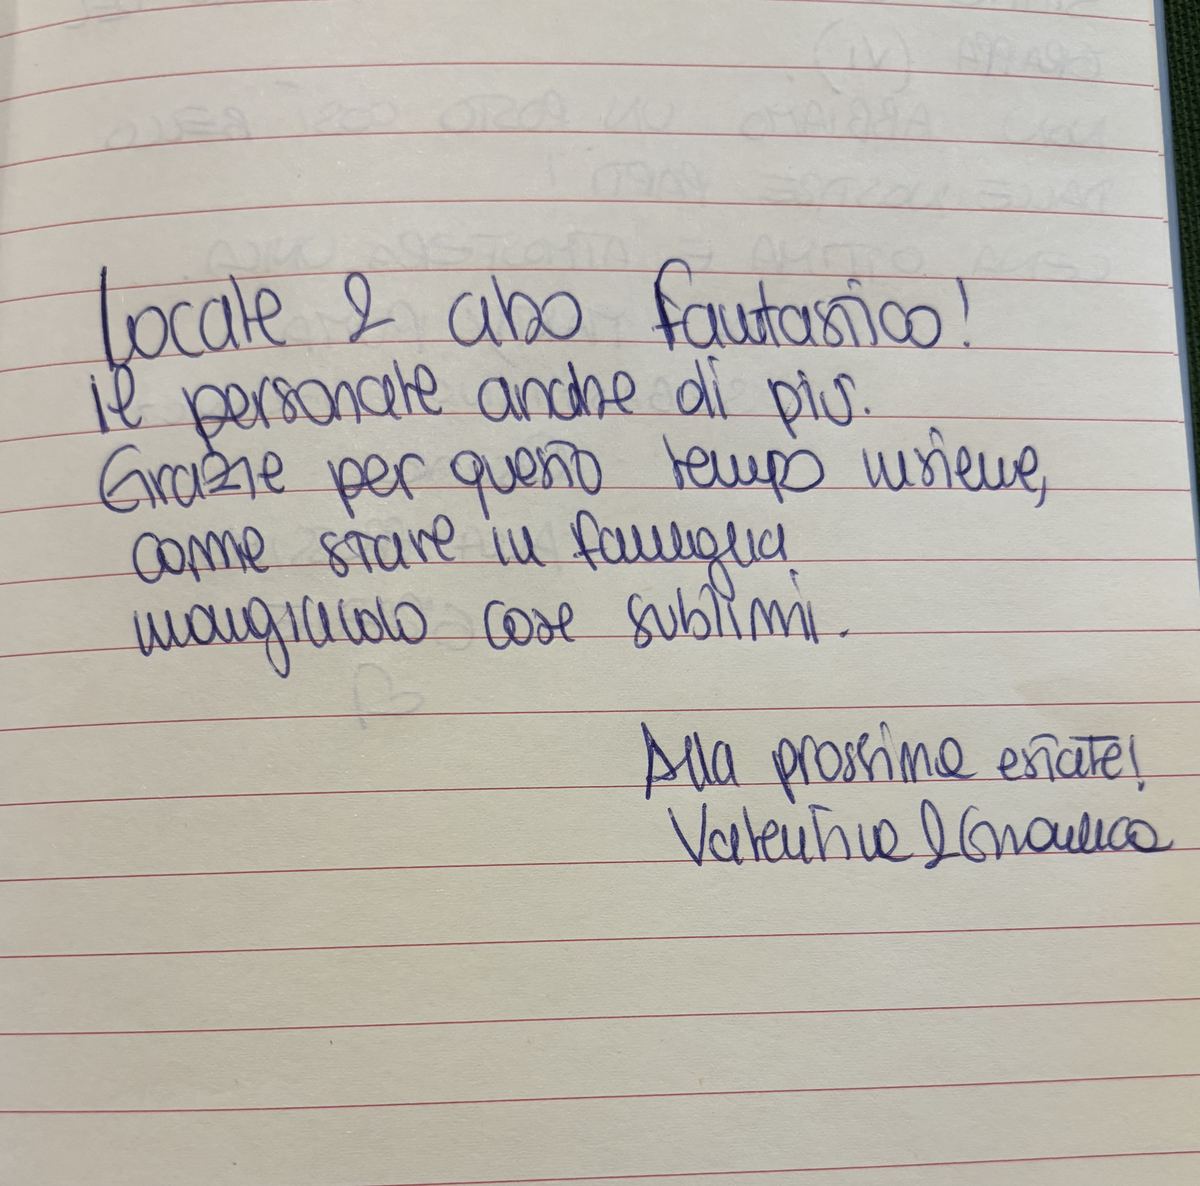 Locale e cibo fantastico!
il personale anche di più.
Grazie per questo tempo insieme,
come stare in famiglia
mangiando cose sublimi.
Alla prossima estate!
Valentina e Gianluca